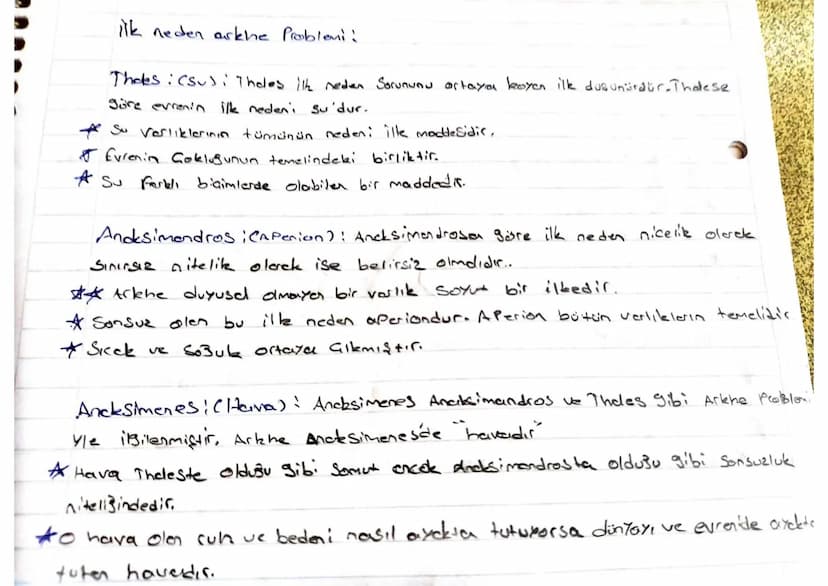 ilk neden arkhe Problemi:
Thales: (Su): Thales ilk neden sorununu ortaya koyan ilk düşünürdür. Thalese
göre evrenin ilk nedeni su'dur.
★ Su varlıklarının tümünün nedeni ilk maddesidir.
★ Evrenin Çokluğunun temelindeki birliktir.
★ Su farklı biçimlerde olabilen bir maddedir.
Anaksimandros: (Aperion): Anaksimandrosa göre ilk neden nicelik olarak
sınırsız nitelik olarak ise belirsiz olmalıdır..
★★ Arkhe duyusal olmayan bir varlık soyut bir ilkedir.
★ Sonsuz olan bu ilk neden aperiondur. Aperion bütün varlıkların temelidir
★ Sıcak ve soğuk ortaya çıkmıştır.
Anaksimenes: (Hava): Anaksimenes Anaksimandros ve Thales gibi Arkhe Problemi
yle ilgilenmiştir, Arkhe Anaksimenes'de "havadır"
★ Hava Thaleste olduğu gibi somut ancak Anaksimandrosta olduğu gibi sonsuzluk
niteliğindedir.
★ O hava olan ruh ve bedeni nasıl ayakta tutuyorsa dünyayı ve evrende ayakta
tutan havadır.